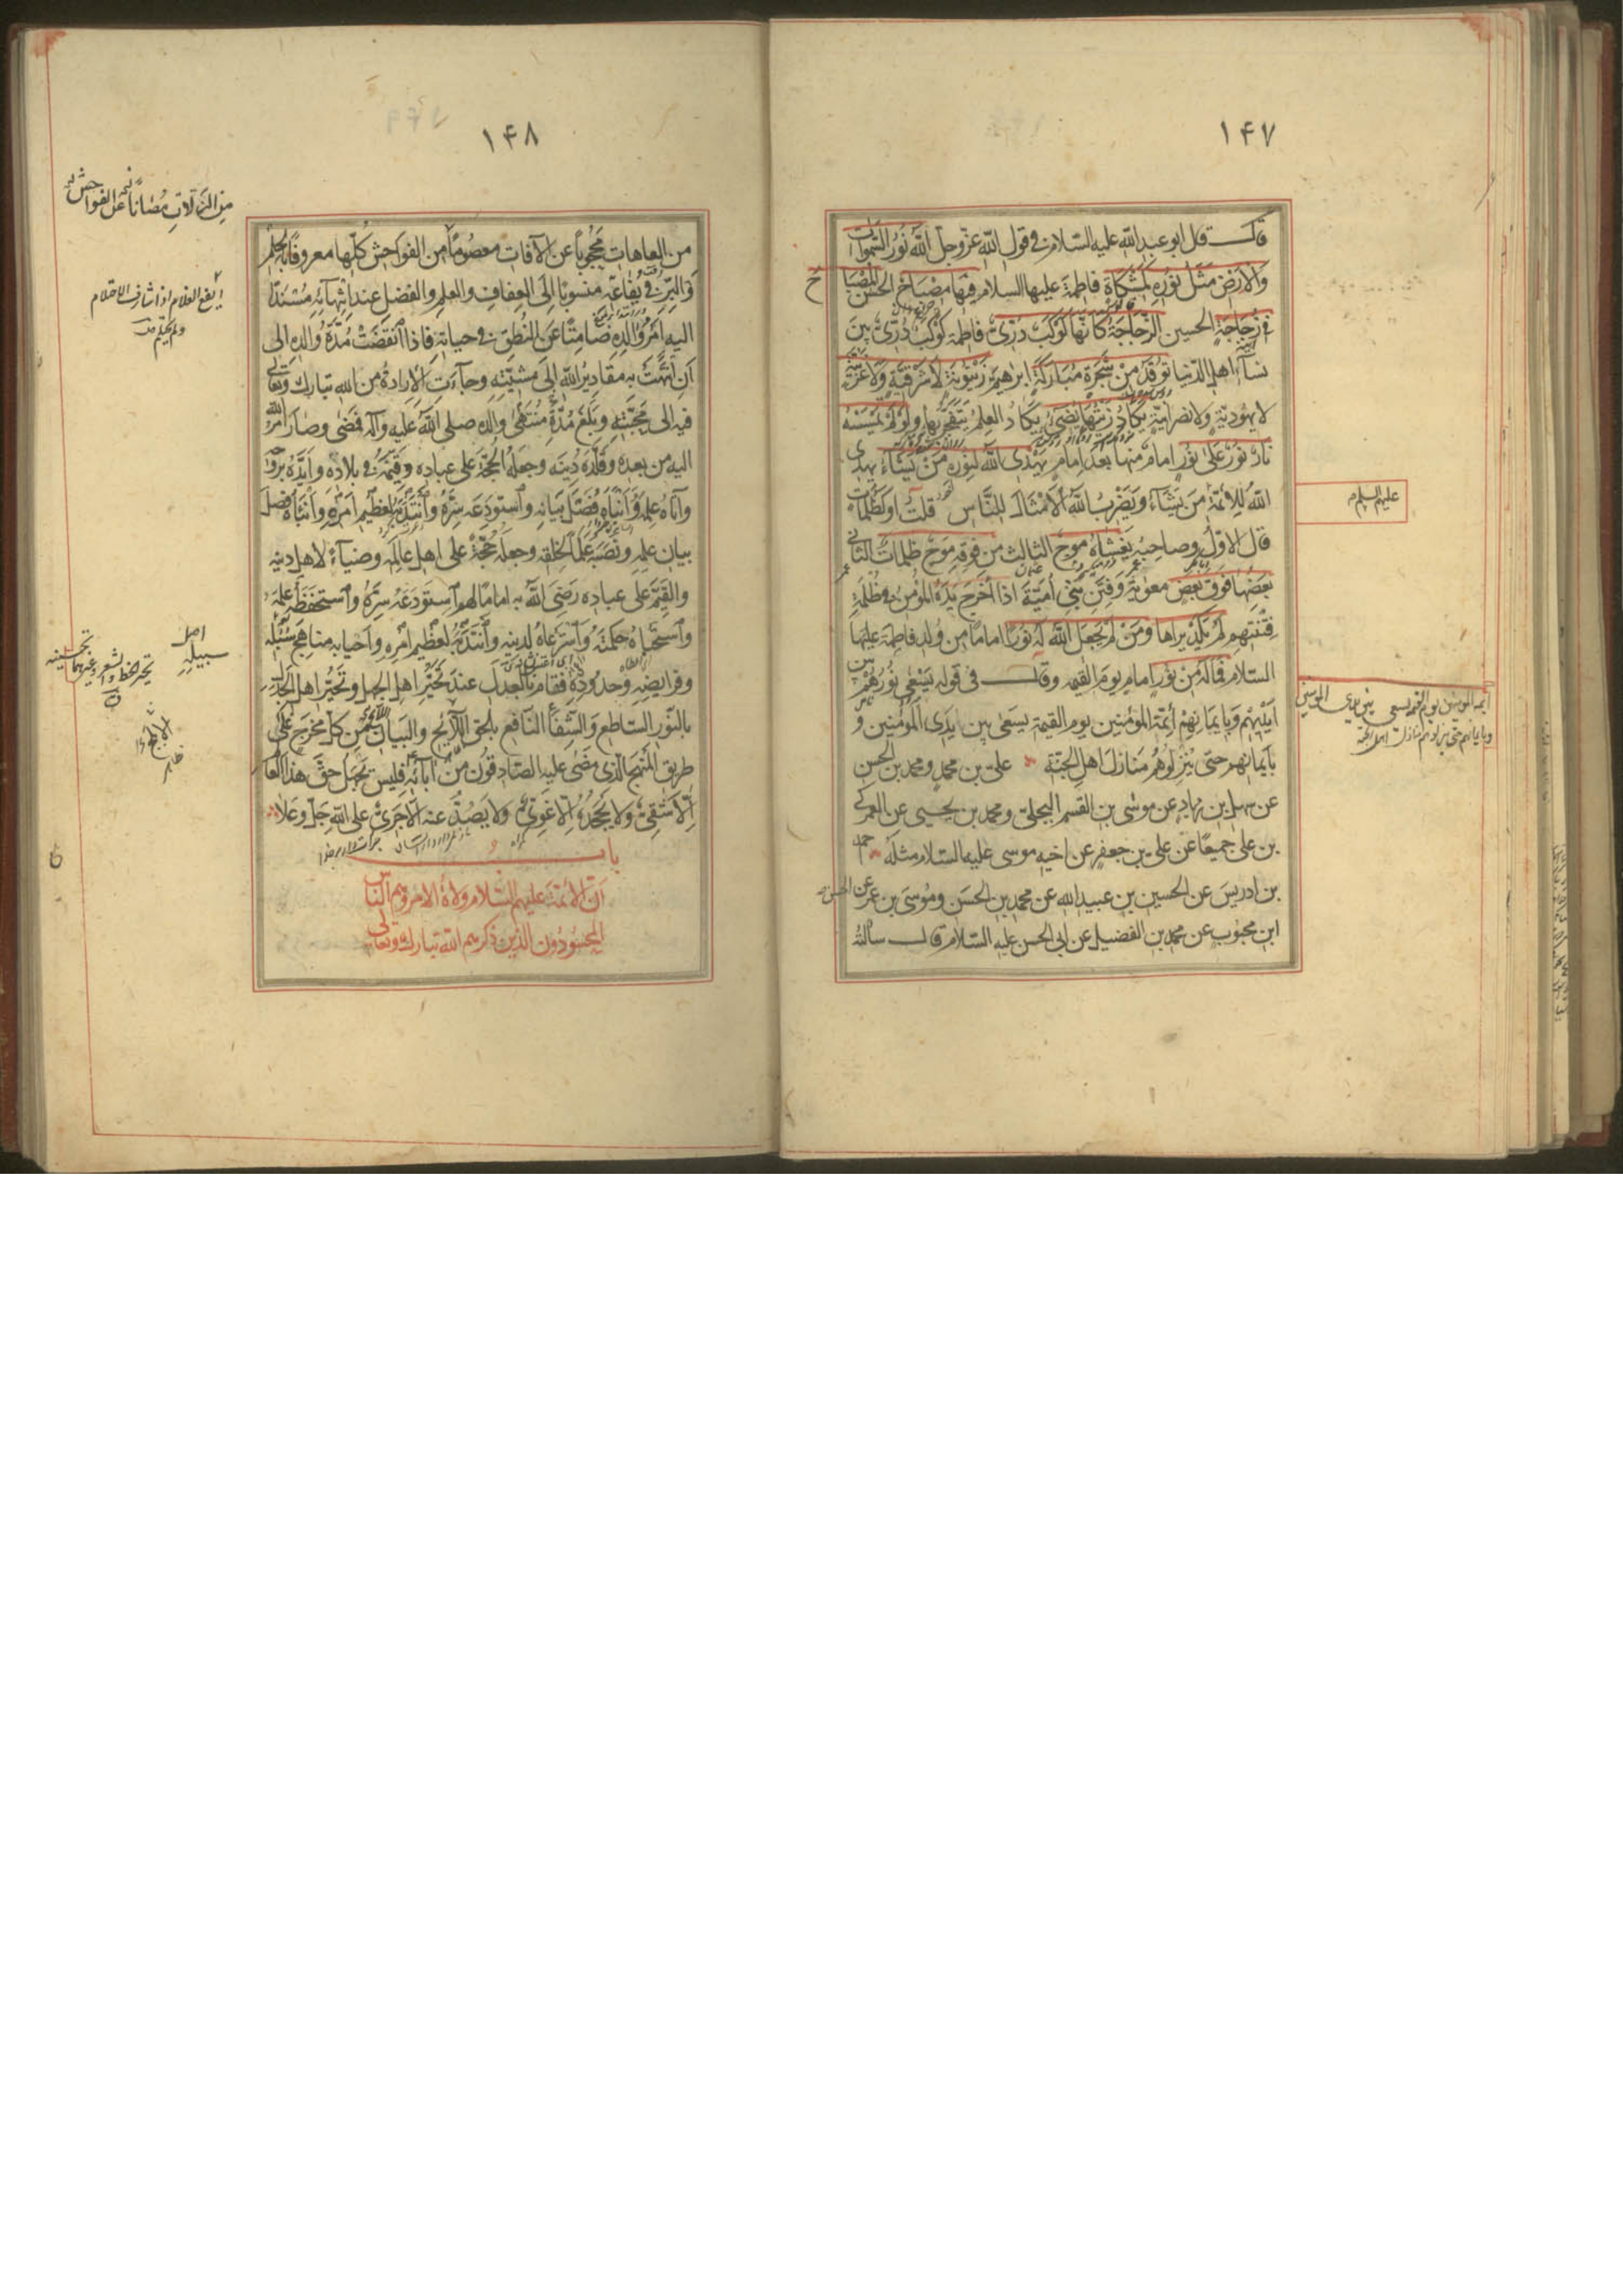 ١٤٧
قال قال ابو عبد الله عليه السلام في قول الله عزوجل الله نور السموات
والارض مثل نوره كمشكاة فاطمة عليها السلام فيها مصباح الحسن المصباح
في زجاجة الحسين الزجاجة كانها كوكب دري فاطمة كوكب دري بين
نساء اهل الدنيا توقد من شجرة مباركة ابراهيم زيتونة لا شرقية ولا غربية
لا يهودية ولا نصرانية يكاد زيتها يضيء يكاد العلم يتفجر بها ولو لم تمسسه
نار نور على نور امام منها بعد امام يهدى الله لنوره من يشاء يهدى
الله للائمة من يشاء ويضرب الله الامثال للناس قلت او كظلمات
قال الاول وصاحبه يغشاه موج الثالث من فوقه موج ظلمات الثاني
بعضها فوق بعض معوية وفتن بني أمية اذا اخرج يده المؤمن في ظلمة
فتنتهم لم يكد يراها ومن لم يجعل الله له نورا اماما من ولد فاطمة عليها
السلام فما له من نور امام يوم القيمة وقال في قوله يسعى نورهم بين
ايديهم وبايمانهم أئمة المؤمنين يوم القيمة يسعى بين يدى المؤمنين و
بايمانهم حتى ينزلوهم منازل اهل الجنة علي بن محمد ومحمد بن الحسن
عن سهل بن زياد عن موسى بن القسم البجلي ومحمد بن يحيى عن العمركي
بن علي جميعا عن علي بن جعفر عن اخيه موسى عليه السلام مثله احمد
بن ادريس عن الحسين بن عبيد الله عن محمد بن الحسن وموسى بن عمر عن الحسن
ابن محبوب عن محمد بن الفضيل عن ابي الحسن عليه السلام قال سألته
عليهم السلام
ائمة المؤمنين يوم القيمة يسعى بين يدى المؤمنين
وبايمانهم حتى ينزلوهم منازل اهل الجنة
١٤٨
من العاهات محجوبا عن الآفات معصوما من الفواحش كلها معروفا بالحلم
والبر في يفاعه منسوبا الى العفاف والعلم والفضل عند انتهائه مسندا
اليه امر والده صامتا عن النطق في حياته فاذا انقضت مدة والده الى
ان انتهت به مقادير الله الى مشيته وجاءت الارادة من الله تبارك وتعالى
فيه الى محبته وبلغ منتهى مدة والده صلى الله عليه وآله فمضى وصار امر الله
اليه من بعده وقلده دينه وجعله الحجة على عباده وقيمه في بلاده وايده بروحه
وآتاه علمه وانباه فصل بيانه واستودعه سره وانتدبه لعظيم امره وانباه فضل
بيان علمه ونصبه علما لخلقه وجعله حجة على اهل عالمه وضياء لاهل دينه
والقيم على عباده رضي الله به اماما لهم استودعه سره واستحفظه علمه
واستخباه حكمته واسترعاه لدينه وانتدبه لعظيم امره واحيا به مناهج سبله
وفرايضه وحدوده فقام بالعدل عند تحير اهل الجهل وتحيير اهل الجدل
بالنور الساطع والشفاء النافع بالحق الابلج والبيان من كل مخرج على
طريق المنهج الذى مضى عليه الصادقون من آبائه فليس يجهل حق هذا العالم
الا شقي ولا يجحده الا غوي ولا يصد عنه الا جرى على الله جل وعلا
باب
ان الائمة عليهم السلام ولاة الامر وهم الناس
المحسودون الذين ذكرهم الله تبارك وتعالى
من الزلات مصانا عن الفواحش
ايفع الغلام اذا شارف الاحتلام
ولم يحتلم
اصل
سبيله
تحبير الخط والشعر وغيرهما تحسينه
الابلج
ظاهر